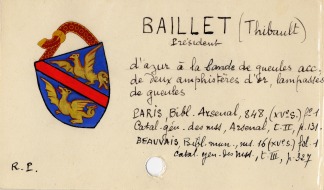 BAILLET (Thibault)
Président
d'azur à la bande de gueules acc.
de deux amphistères d'or, lampassés
de gueules
PARIS, Bibl. Arsenal, 848, (XVe s.) fol. 1
Catal. gén. des mss, Arsenal, t. II, p. 131.
BEAUVAIS, Bibl. mun., ms 16 (XVe s.) fol. 1
Catal. gén. des mss, t. III, p. 327
R. P.